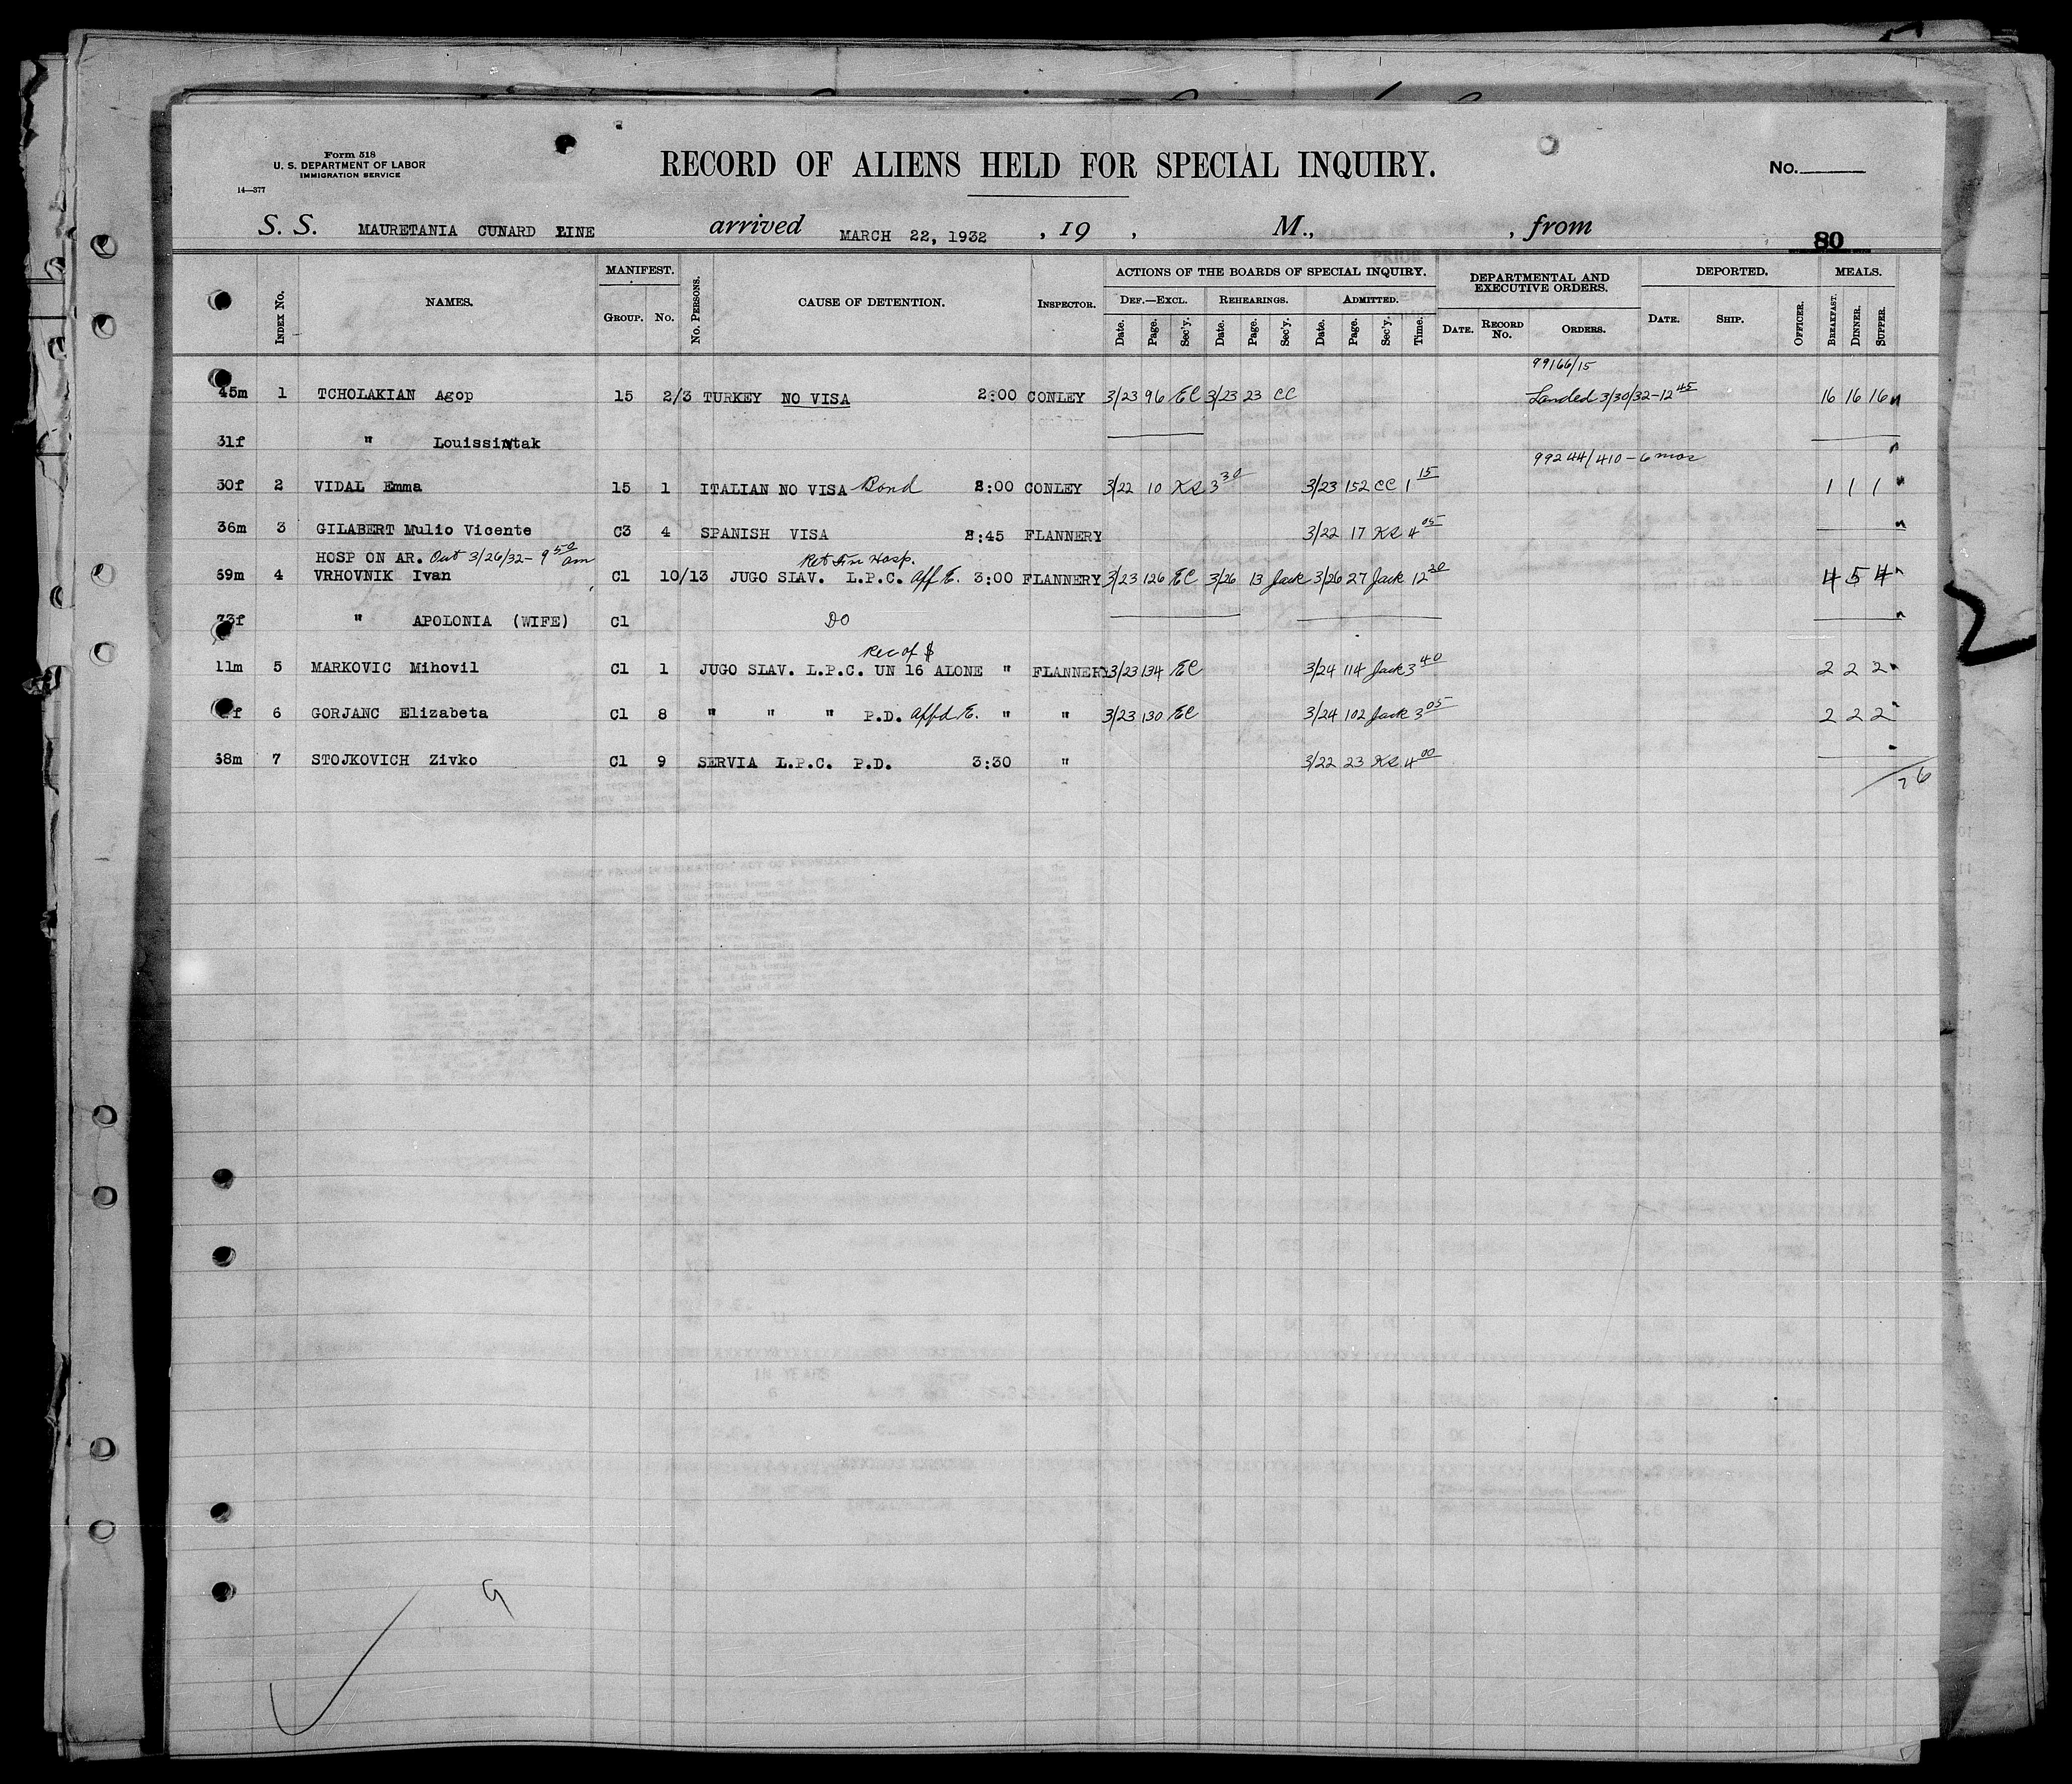 Form 518
U. S. DEPARTMENT OF LABOR
IMMIGRATION SERVICE
14—377
RECORD OF ALIENS HELD FOR SPECIAL INQUIRY.
No.
S. S. MAURETANIA CUNARD LINE arrived MARCH 22, 1932 , 19 , M., , from
80
INDEX No. NAMES. MANIFEST. GROUP. No. No. PERSONS. CAUSE OF DETENTION. INSPECTOR. ACTIONS OF THE BOARDS OF SPECIAL INQUIRY. DEF.—EXCL. Date. Page. Sec'y. REHEARINGS. Date. Page. Sec'y. ADMITTED. Date. Page. Sec'y. Time. DEPARTMENTAL AND EXECUTIVE ORDERS. DATE. RECORD No. ORDERS. DEPORTED. DATE. SHIP. OFFICER. MEALS. BREAKFAST. DINNER. SUPPER.
99166/15
45m 1 TCHOLAKIAN Agop 15 2/3 TURKEY NO VISA 2:00 CONLEY 3/23 96 EC 3/23 23 CC Landed 3/30/32-12 45 16 16 16
31f " 
99244/410 - 6 mos
30f 2 VIDAL Emma 15 1 ITALIAN NO VISA Bond 2:00 CONLEY 3/22 10 KS 3 30 3/23 152 CC 1 15 1 1 1
36m 3 GILABERT Mulio Vicente C3 4 SPANISH VISA 2:45 FLANNERY 3/22 17 KS 4 05
HOSP ON AR. Out 3/26/32- 9 50 am Hosp.
69m 4 VRHOVNIK Ivan C1 10/13 JUGO SLAV. L.P.C. Aff E. 3:00 FLANNERY 3/23 126 EC 3/26 13 Jack 3/26 27 Jack 12 30 4 5 4
73f " APOLONIA (WIFE) C1 DO
Rec of $
11m 5 MARKOVIC Mihovil C1 1 JUGO SLAV. L.P.C. UN 16 ALONE " FLANNERY 3/23 134 EC 3/24 114 Jack 3 40 2 2 2
f 6 GORJANC Elizabeta C1 8 " " " P.D. Affd E. " " 3/23 130 EC 3/24 102 Jack 3 05 2 2 2
38m 7 STOJKOVICH Zivko C1 9 SERVIA L.P.C. P.D. 3:30 " 3/22 23 KS 4 00
26
2
9